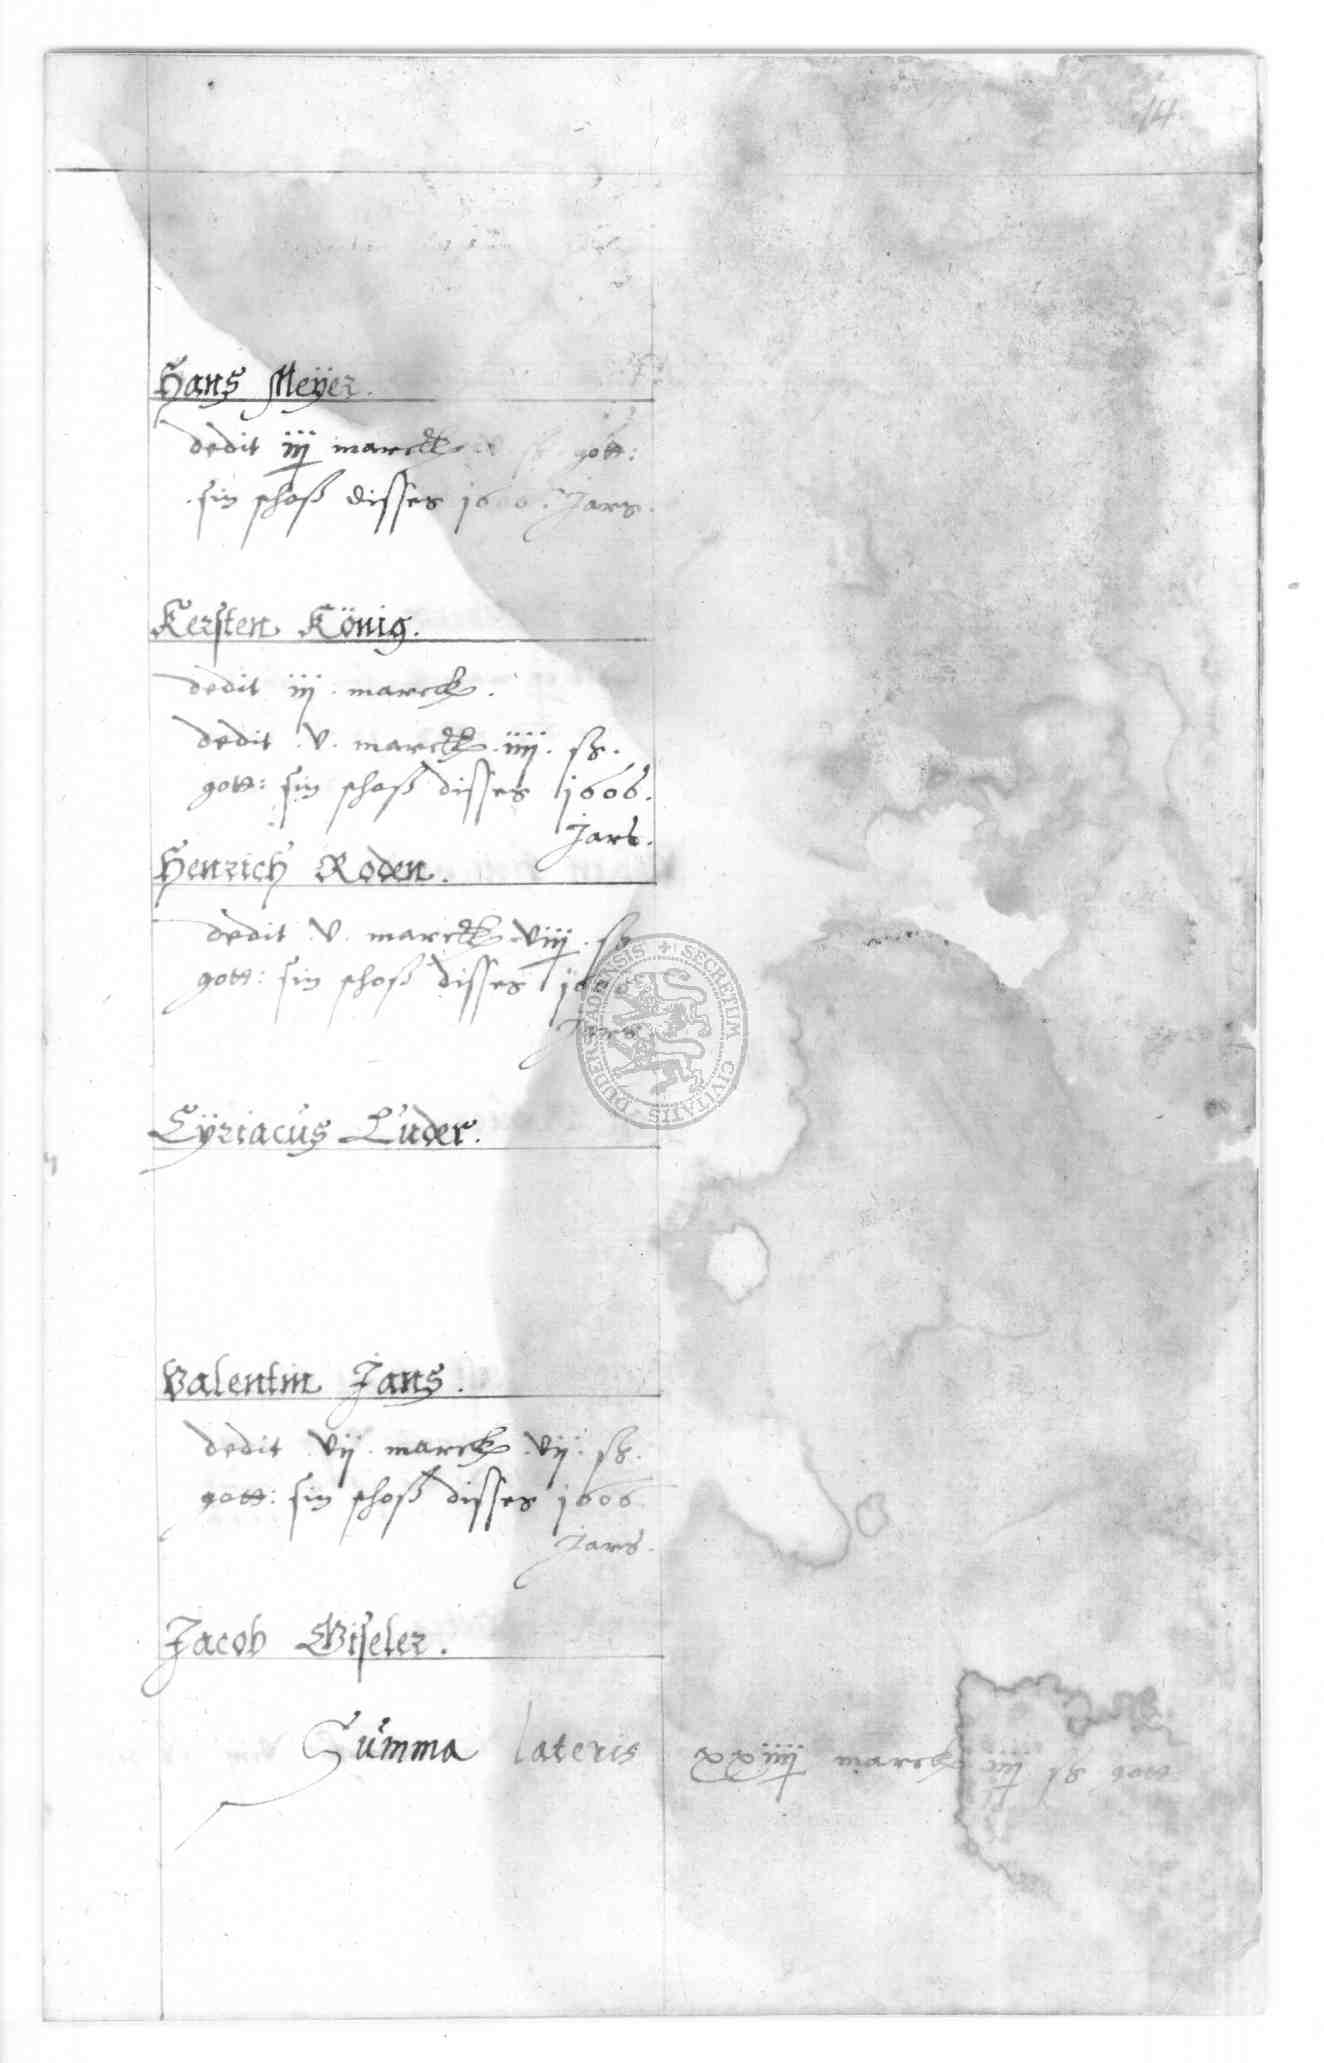 14
Hans Meÿer.
dedit iij marck gott:
sin schoß disses Jars.
Kersten König.
dedit iij. marck.
dedit .v. marck. iiij. ß.
gott: sin schoß disses 1606.
Jars.
Henrich Roden.
dedit .v. marck. viij. ß
gott: sin schoß disses
Jars
Cÿriacus Luder.
Valentin Jans.
dedit .vij. marck .vij. ß.
gott: sin schoß disses 1606
Jars.
Jacob Giseler.
Summa lateris xxiiij marck iiij ß gott
SECRETUM CIVITATIS DUDERSTADENSIS